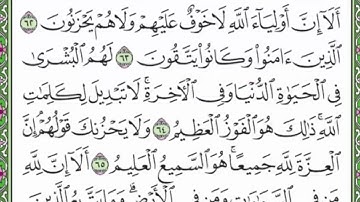 أَلَآ إِنَّ أَوْلِيَآءَ ٱللَّهِ لَا خَوْفٌ عَلَيْهِمْ وَلَا هُمْ يَحْزَنُونَ ٦٢
ٱلَّذِينَ ءَامَنُوا۟ وَكَانُوا۟ يَتَّقُونَ ٦٣ لَهُمُ ٱلْبُشْرَىٰ
فِى ٱلْحَيَوٰةِ ٱلدُّنْيَا وَفِى ٱلْءَاخِرَةِ ۚ لَا تَبْدِيلَ لِكَلِمَٰتِ
ٱللَّهِ ۚ ذَٰلِكَ هُوَ ٱلْفَوْزُ ٱلْعَظِيمُ ٦٤ وَلَا يَحْزُنكَ قَوْلُهُمْ ۘ إِنَّ
ٱلْعِزَّةَ لِلَّهِ جَمِيعًا ۚ هُوَ ٱلسَّمِيعُ ٱلْعَلِيمُ ٦٥ أَلَآ إِنَّ لِلَّهِ
مَن فِى ٱلسَّمَٰوَٰتِ وَمَن فِى ٱلْأَرْضِ ۗ وَمَا يَتَّبِعُ ٱلَّذِينَ